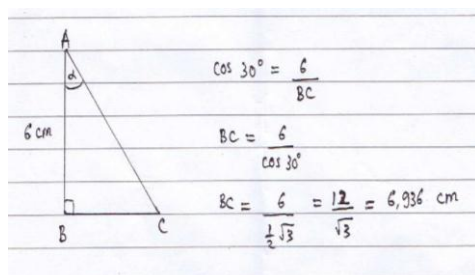 A
α
6 cm
B
C
cos 30° = 6 / BC
BC = 6 / cos 30°
BC = 6 / ½√3 = 12 / √3 = 6,936 cm